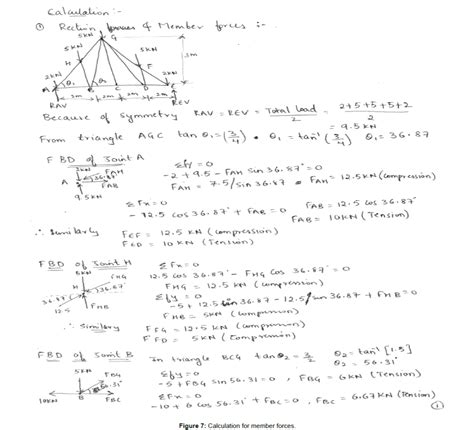 Calculation :-
① Rection forces & Member forces :-
5KN G
5KN 5KN
H F 3m
2KN 2KN
A θ₁ B θ₂ C D E
2m 2m 2m 2m
RAV REV
Because of symmetry RAV = REV = Total load / 2 = 2+5+5+5+2 / 2
= 9.5KN
From triangle AGC tan θ₁ = (3/4) • θ₁ = tan⁻¹ (3/4) θ₁ = 36.87
FBD of Joint A
2KN FAH
A 36.87
FAB
9.5KN
Σfy = 0
-2 + 9.5 - FAH Sin 36.87° = 0
FAH = 7.5/sin 36.87 • FAH = 12.5KN (compression)
ΣFx = 0
-12.5 cos 36.87° + FAB = 0 FAB = 12.5 cos 36.87°
FAB = 10KN (Tension)
∴ Similarly FEF = 12.5 KN (compression)
FED = 10 KN (Tension)
FBD of Joint H
5KN FHG
H 36.87°
36.87°
12.5 FHB
ΣFx = 0
12.5 cos 36.87° - FHG cos 36.87° = 0
FHG = 12.5 KN (compression)
Σfy = 0
-5 + 12.5 sin 36.87 - 12.5 sin 36.87 + FHB = 0
FHB = 5KN (compression)
∴ Similarly FFG = 12.5 KN (compression)
FFD = 5KN (compression)
FBD of Joint B
5KN FBG
56.31°
10KN B FBC
In triangle BCG tan θ₂ = 3/2 θ₂ = tan⁻¹ [1.5]
θ₂ = 56.31°
Σfy = 0
-5 + FBG sin 56.31 = 0 , FBG = 6KN (Tension)
ΣFx = 0
-10 + 6 cos 56.31° + FBC = 0 , FBC = 6.67KN (Tension)
①
Figure 7: Calculation for member forces.